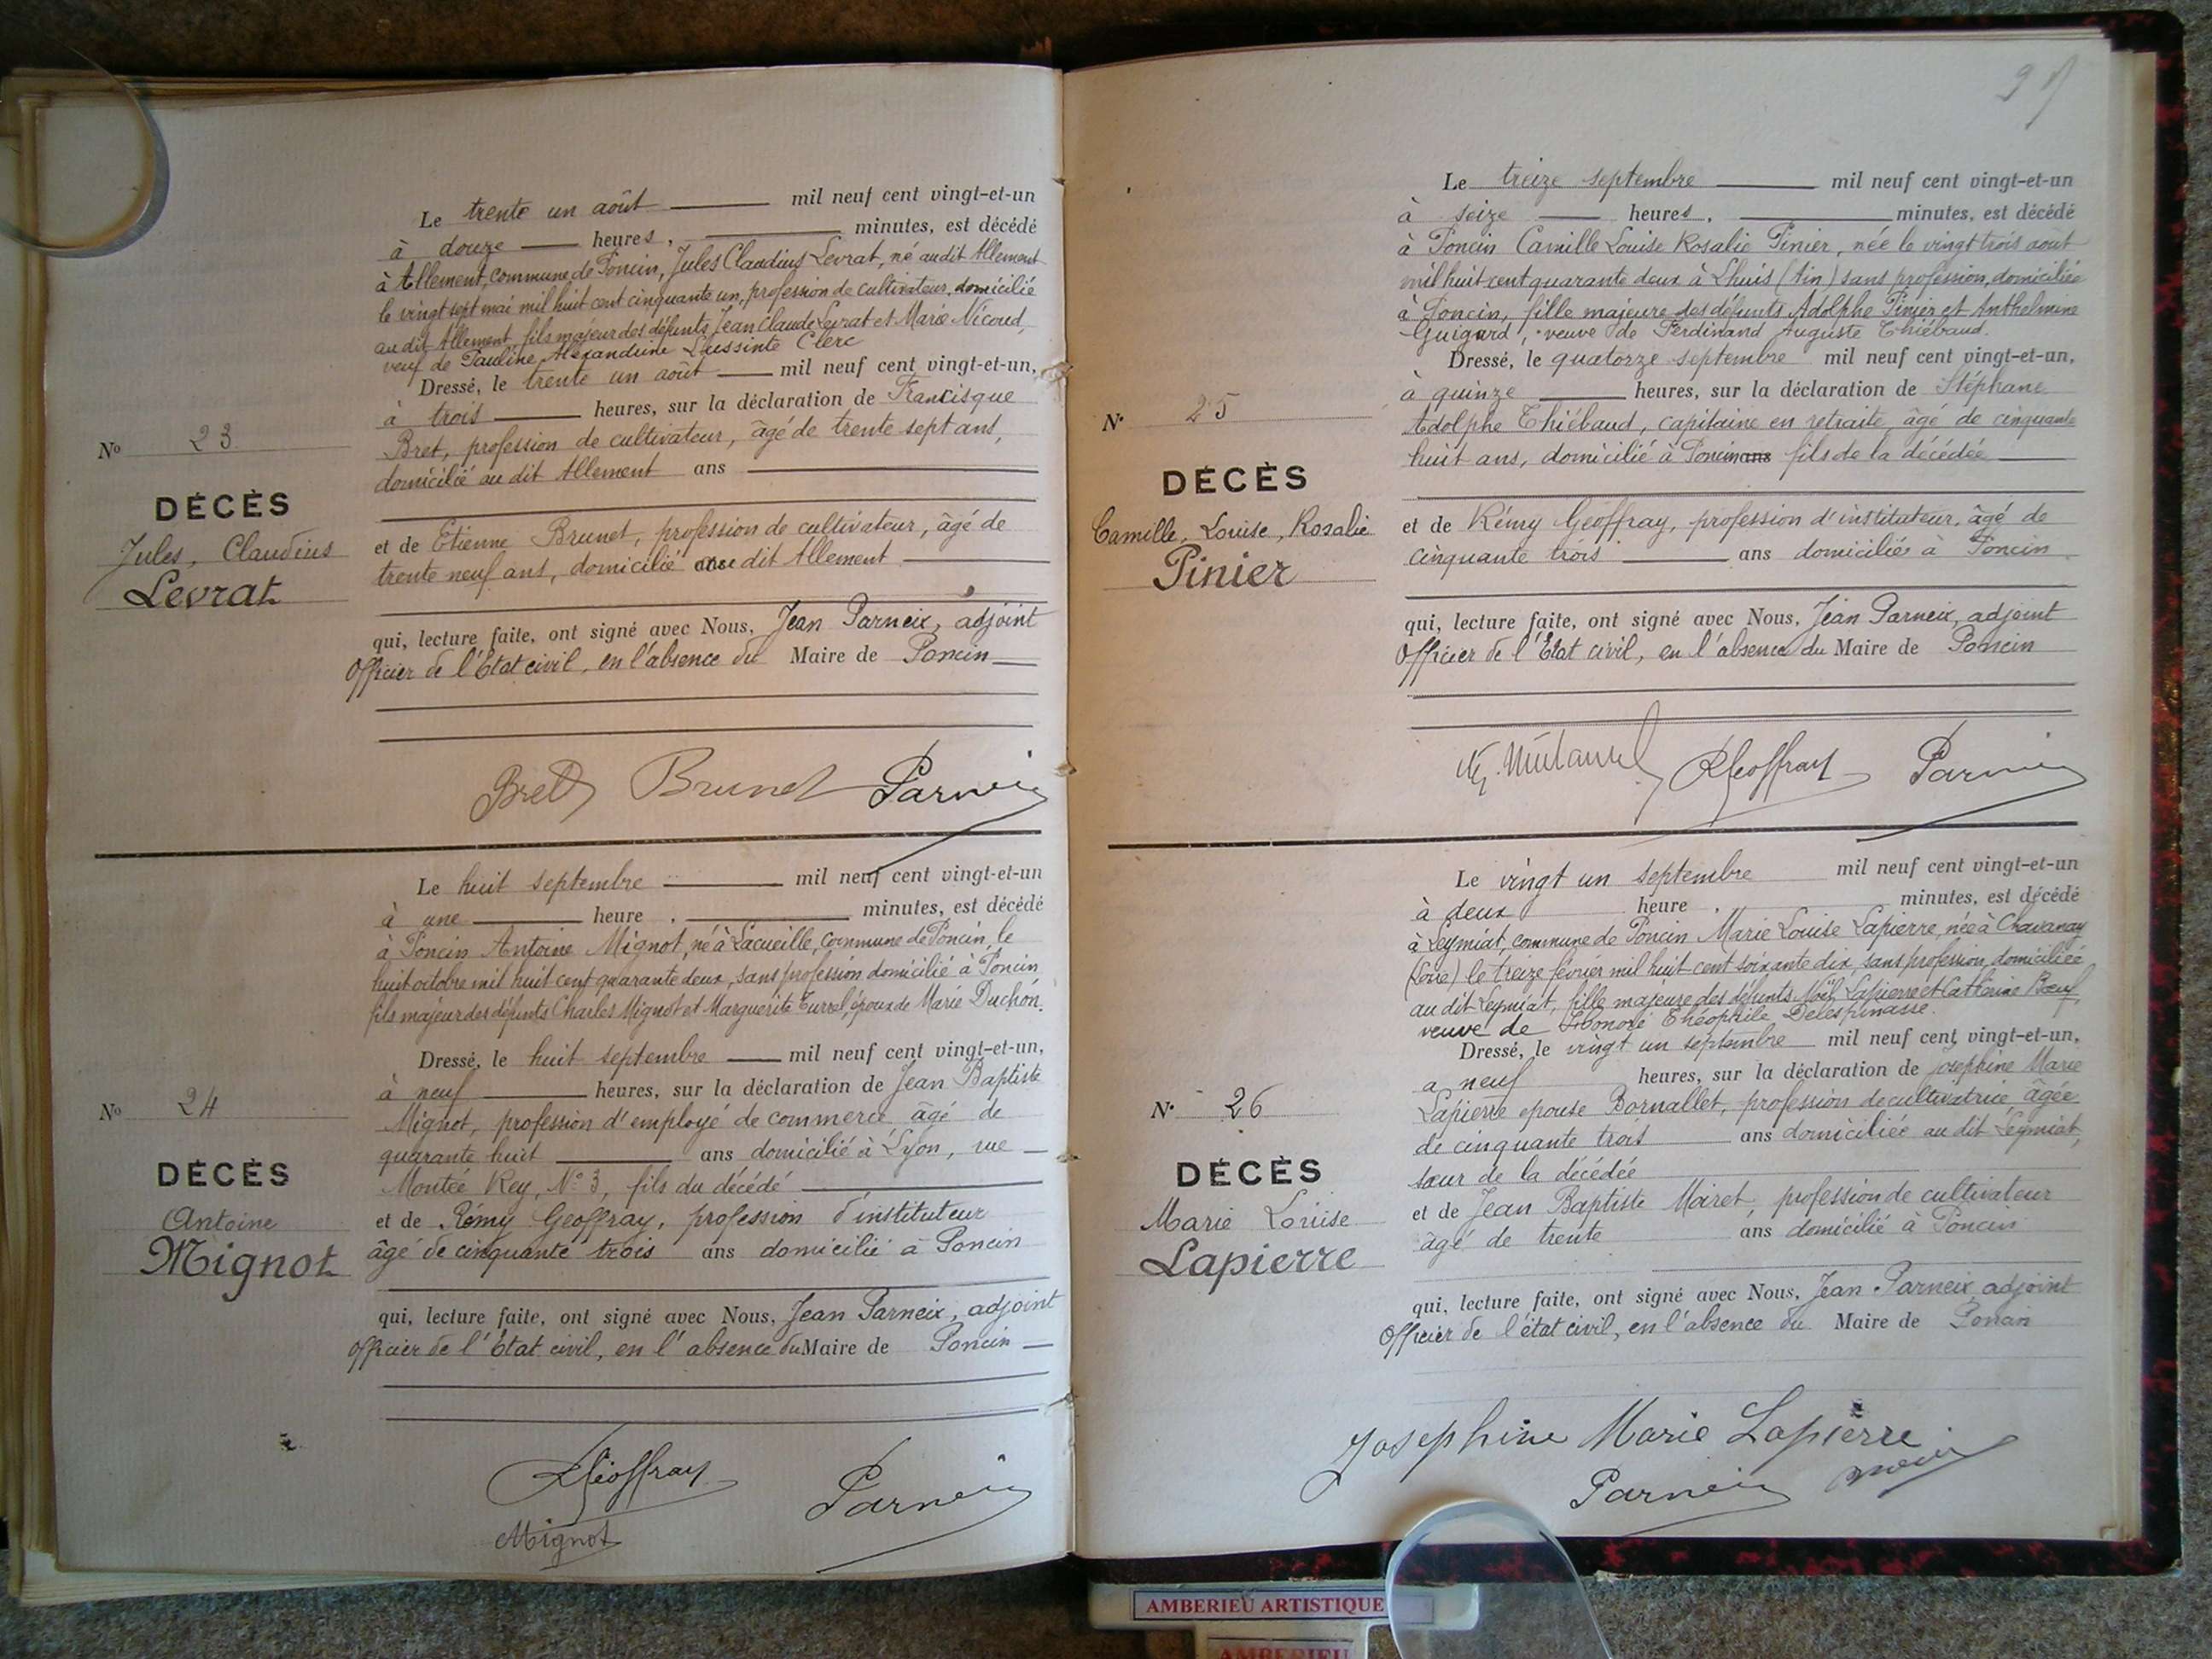 Le trente un août mil neuf cent vingt-et-un
à douze heures, minutes, est décédé
à Allement, commune de Poncin, Jules Claudius Levrat, né audit Allement
le vingt sept mai mil huit cent cinquante un, profession de cultivateur, domicilié
au dit Allement, fils majeur des défunts Jean Claude Levrat et Marie Nicoud,
veuf de Pauline Alexandrine Clerc
Dressé, le trente un août mil neuf cent vingt-et-un,
à trois heures, sur la déclaration de Francisque
Bret, profession de cultivateur, âgé de trente sept ans,
domicilié au dit Allement ans
No 23
DÉCÈS
Jules, Claudius
Levrat
et de Etienne Brunet, profession de cultivateur, âgé de
trente neuf ans, domicilié au dit Allement
qui, lecture faite, ont signé avec Nous, Jean Parneix, adjoint
Officier de l'Etat civil, en l'absence du Maire de Poncin
Bret Brunet Parneix
Le huit septembre mil neuf cent vingt-et-un
à une heure, minutes, est décédé
à Poncin Antoine Mignot, né à Lacueille, commune de Poncin, le
huit octobre mil huit cent quarante deux, sans profession domicilié à Poncin
fils majeur des défunts Charles Mignot et Marguerite Turrel, époux de Marie Duchon.
Dressé, le huit septembre mil neuf cent vingt-et-un,
à neuf heures, sur la déclaration de Jean Baptiste
Mignot, profession d'employé de commerce âgé de
quarante huit ans domicilié à Lyon, rue
Montée Rey, N° 3, fils du décédé
No 24
DÉCÈS
Antoine
Mignot
et de Rémy Geoffray, profession d'instituteur
âgé de cinquante trois ans domicilié à Poncin
qui, lecture faite, ont signé avec Nous, Jean Parneix, adjoint
Officier de l'Etat civil, en l'absence du Maire de Poncin
RGeoffray Parneix
Mignot
Le treize septembre mil neuf cent vingt-et-un
à seize heures, minutes, est décédé
à Poncin Camille Louise Rosalie Pinier, née le vingt trois août
mil huit cent quarante deux à Lhuis (Ain) sans profession, domiciliée
à Poncin, fille majeure des défunts Adolphe Pinier et Anthelmine
Guigard, veuve de Ferdinand Auguste Thiébaud.
Dressé, le quatorze septembre mil neuf cent vingt-et-un,
à quinze heures, sur la déclaration de Stéphane
Adolphe Thiébaud, capitaine en retraite, âgé de cinquante
huit ans, domicilié à Poncin ans fils de la décédée
N° 25
DÉCÈS
Camille, Louise, Rosalie
Pinier
et de Rémy Geoffray, profession d'instituteur, âgé de
cinquante trois ans domiciliés à Poncin
qui, lecture faite, ont signé avec Nous, Jean Parneix, adjoint
Officier de l'Etat civil, en l'absence du Maire de Poncin
RGeoffray Parneix
Le vingt un septembre mil neuf cent vingt-et-un
à deux heure, minutes, est décédé
à Leymiat, commune de Poncin Marie Louise Lapierre, née à Chavanay
(Loire) le treize février mil huit cent soixante dix, sans profession, domiciliée
au dit Leymiat, fille majeure des défunts Noël Lapierre et Catherine Bœuf,
veuve de Honoré Théophile Delespinasse.
Dressé, le vingt un septembre mil neuf cent vingt-et-un,
a neuf heures, sur la déclaration de Joséphine Marie
Lapierre epouse Bornallet, profession de cultivatrice âgée
de cinquante trois ans domiciliée au dit Leymiat,
sœur de la décédée
N° 26
DÉCÈS
Marie Louise
Lapierre
et de Jean Baptiste Moiret, profession de cultivateur
âgé de trente ans domicilié à Poncin
qui, lecture faite, ont signé avec Nous, Jean Parneix adjoint
Officier de l'état civil, en l'absence du Maire de Poncin
Josephine Marie Lapierre
Parneix
AMBERIEU ARTISTIQUE
AMBERIEU